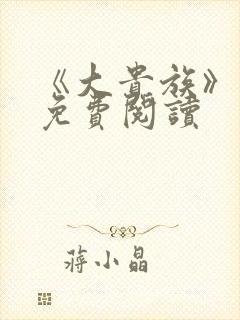 《大貴族》
免費閱讀
蔣小晶